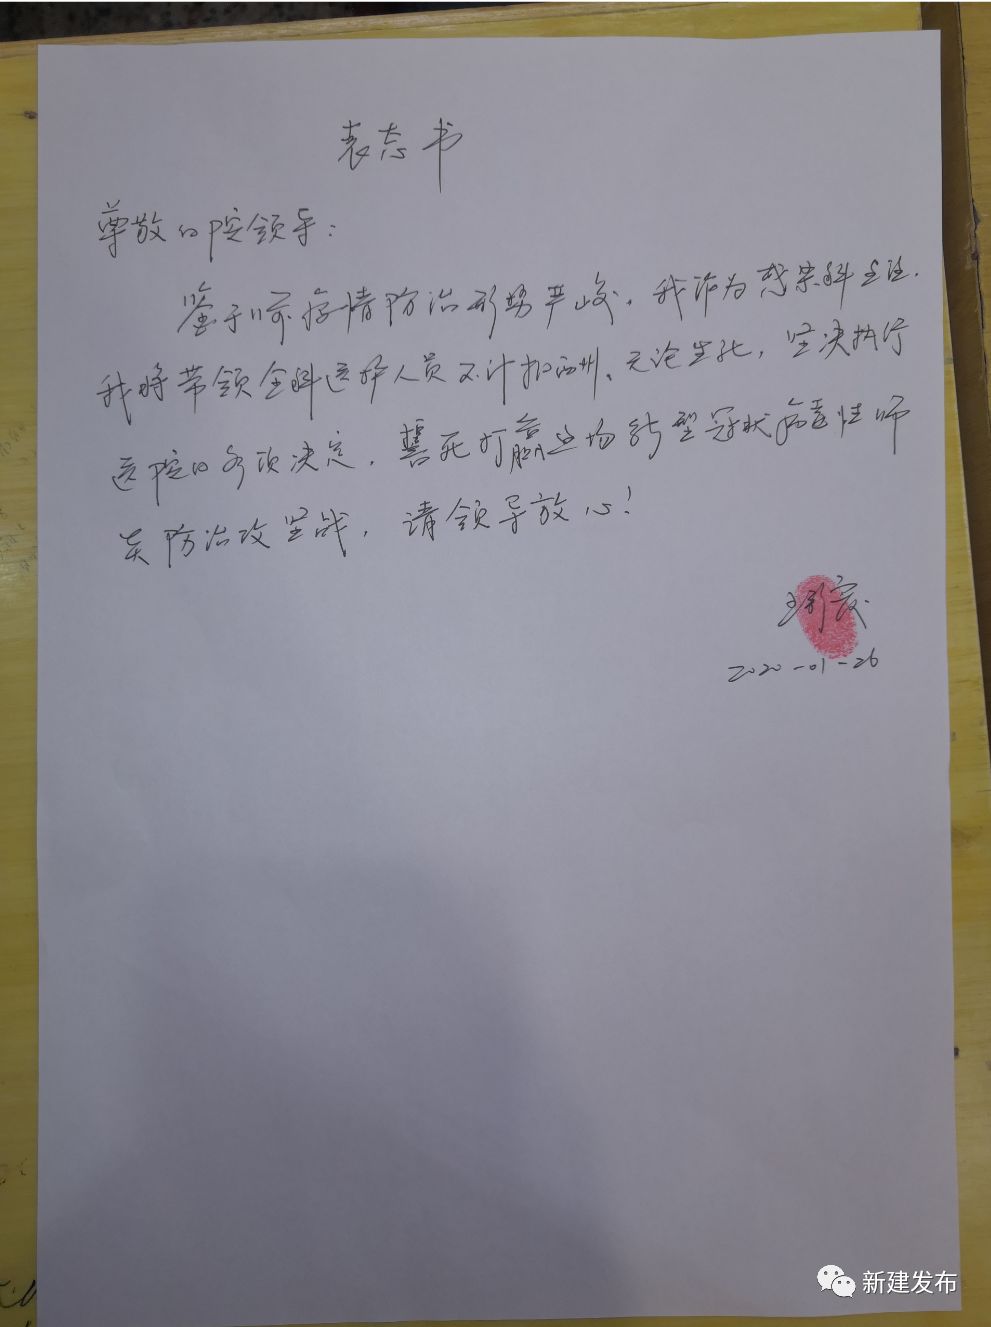 表态书
尊敬的院领导：
鉴于目前疫情防治形势严峻，我作为感染科主任，
我将带领全科医护人员不计报酬、无论生死，坚决执行
医院的各项决定，誓死打赢这场新型冠状病毒性肺
炎防治攻坚战，请领导放心！
2020-01-26
新建发布